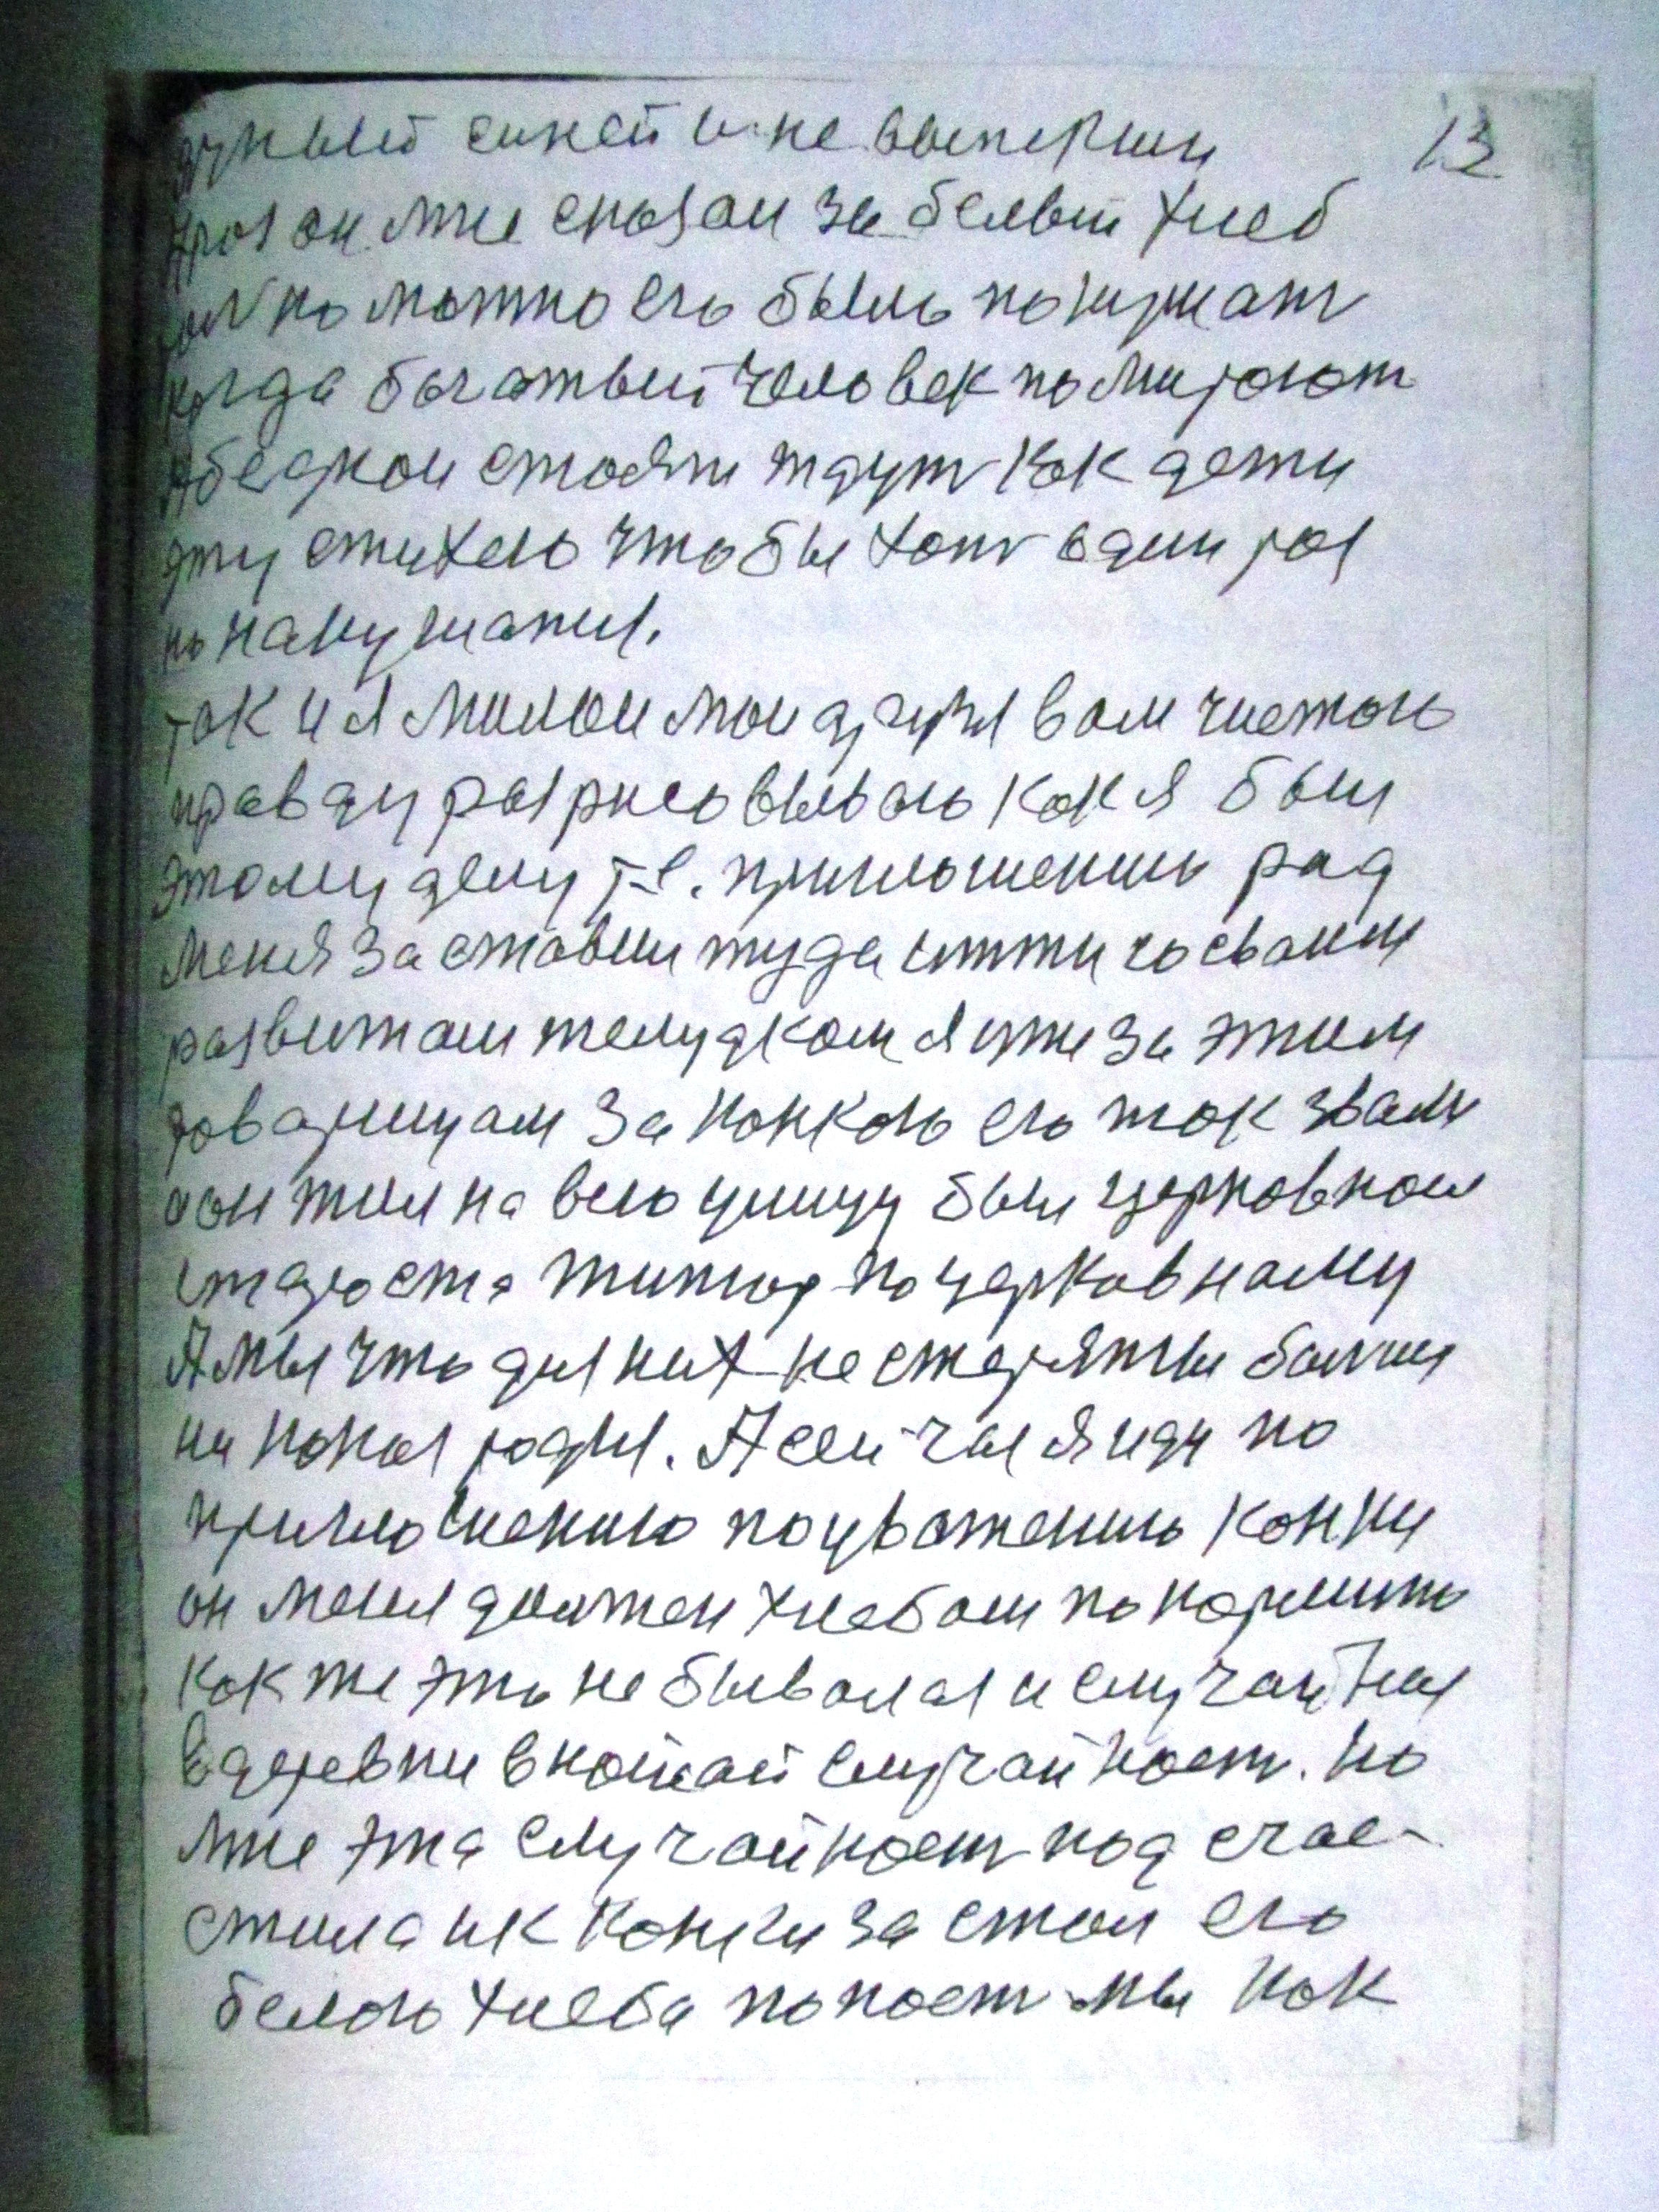 13
мне сказал за белый хлеб
можно его было покушат
когда богатый человек помирают
А бедной стояли ждут как дети
эту стихею чтобы хот один раз
пакушатия.
так и я милои мои друзя вам чистою
правду разрисовываю как я был
этому делу т-е. приглошению рад
меня заставили туда итти со своим
развитом желудком я иже за этим
товарищам за Конкою его так звали
а он жил на всю улицу был церковном
староста титор по церковному
А мы что для них нестерятны болши
ни копал радил. А сейчас я иду по
приглошению поуважению Конки
он меня должен хлебом покормить
как же это не бывалая и случайная
В деревни в какойтай случайност. но
мне эта случайност под счас-
стила и к Конки за стол его
белого хлеба попост мы как